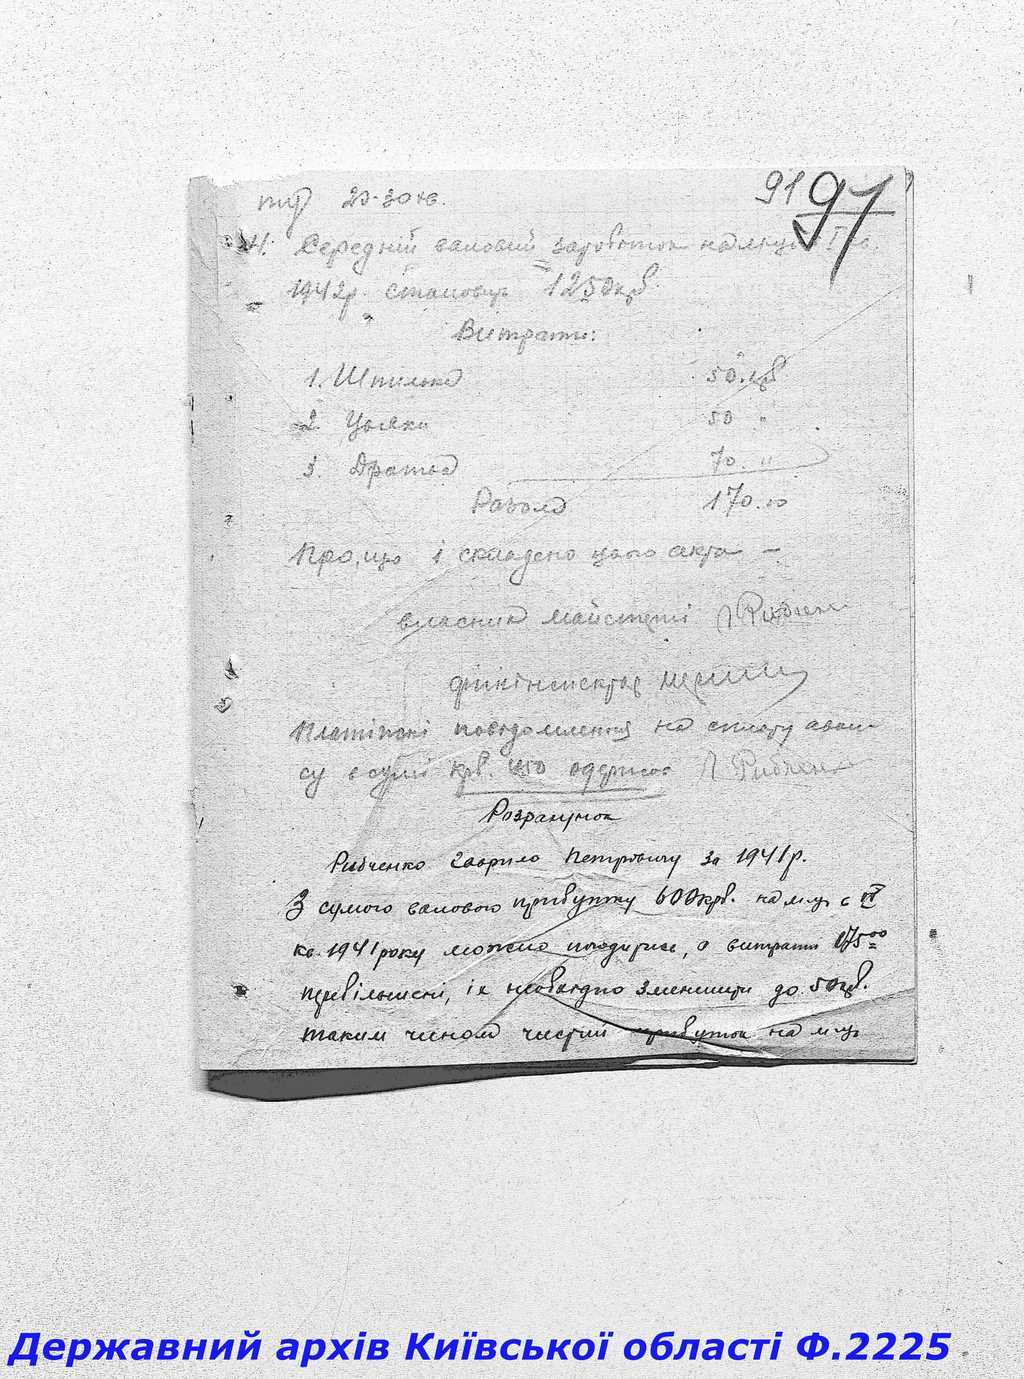 91 97
20-30 кв.
4. Середній валовий заробіток на місяць I кв.
1942р. становить 1250 крб.
Витрати:
1. Шпилька 50. крб
2. Цвяхи 50 "
3. Дратва 70. "
Разом 170.00
Про, що і складено цього акта —
власник майстерні Рибченко
фінінспектор
Платіжні повідомлення на сплату аван-
су в сумі крб. 450 одержав Рибченко
Розрахунок
Рибченко Гаврило Петровичу за 1941р.
З сумого валового прибутку 600 крб. на м-ць с IV
кв. 1941 року можно погодитись, а витрати 175 00
перебільшені, іх необхідно зменшити до 50 крб.
таким чином чистий прибуток на м-ць
Державний архів Київської області Ф.2225